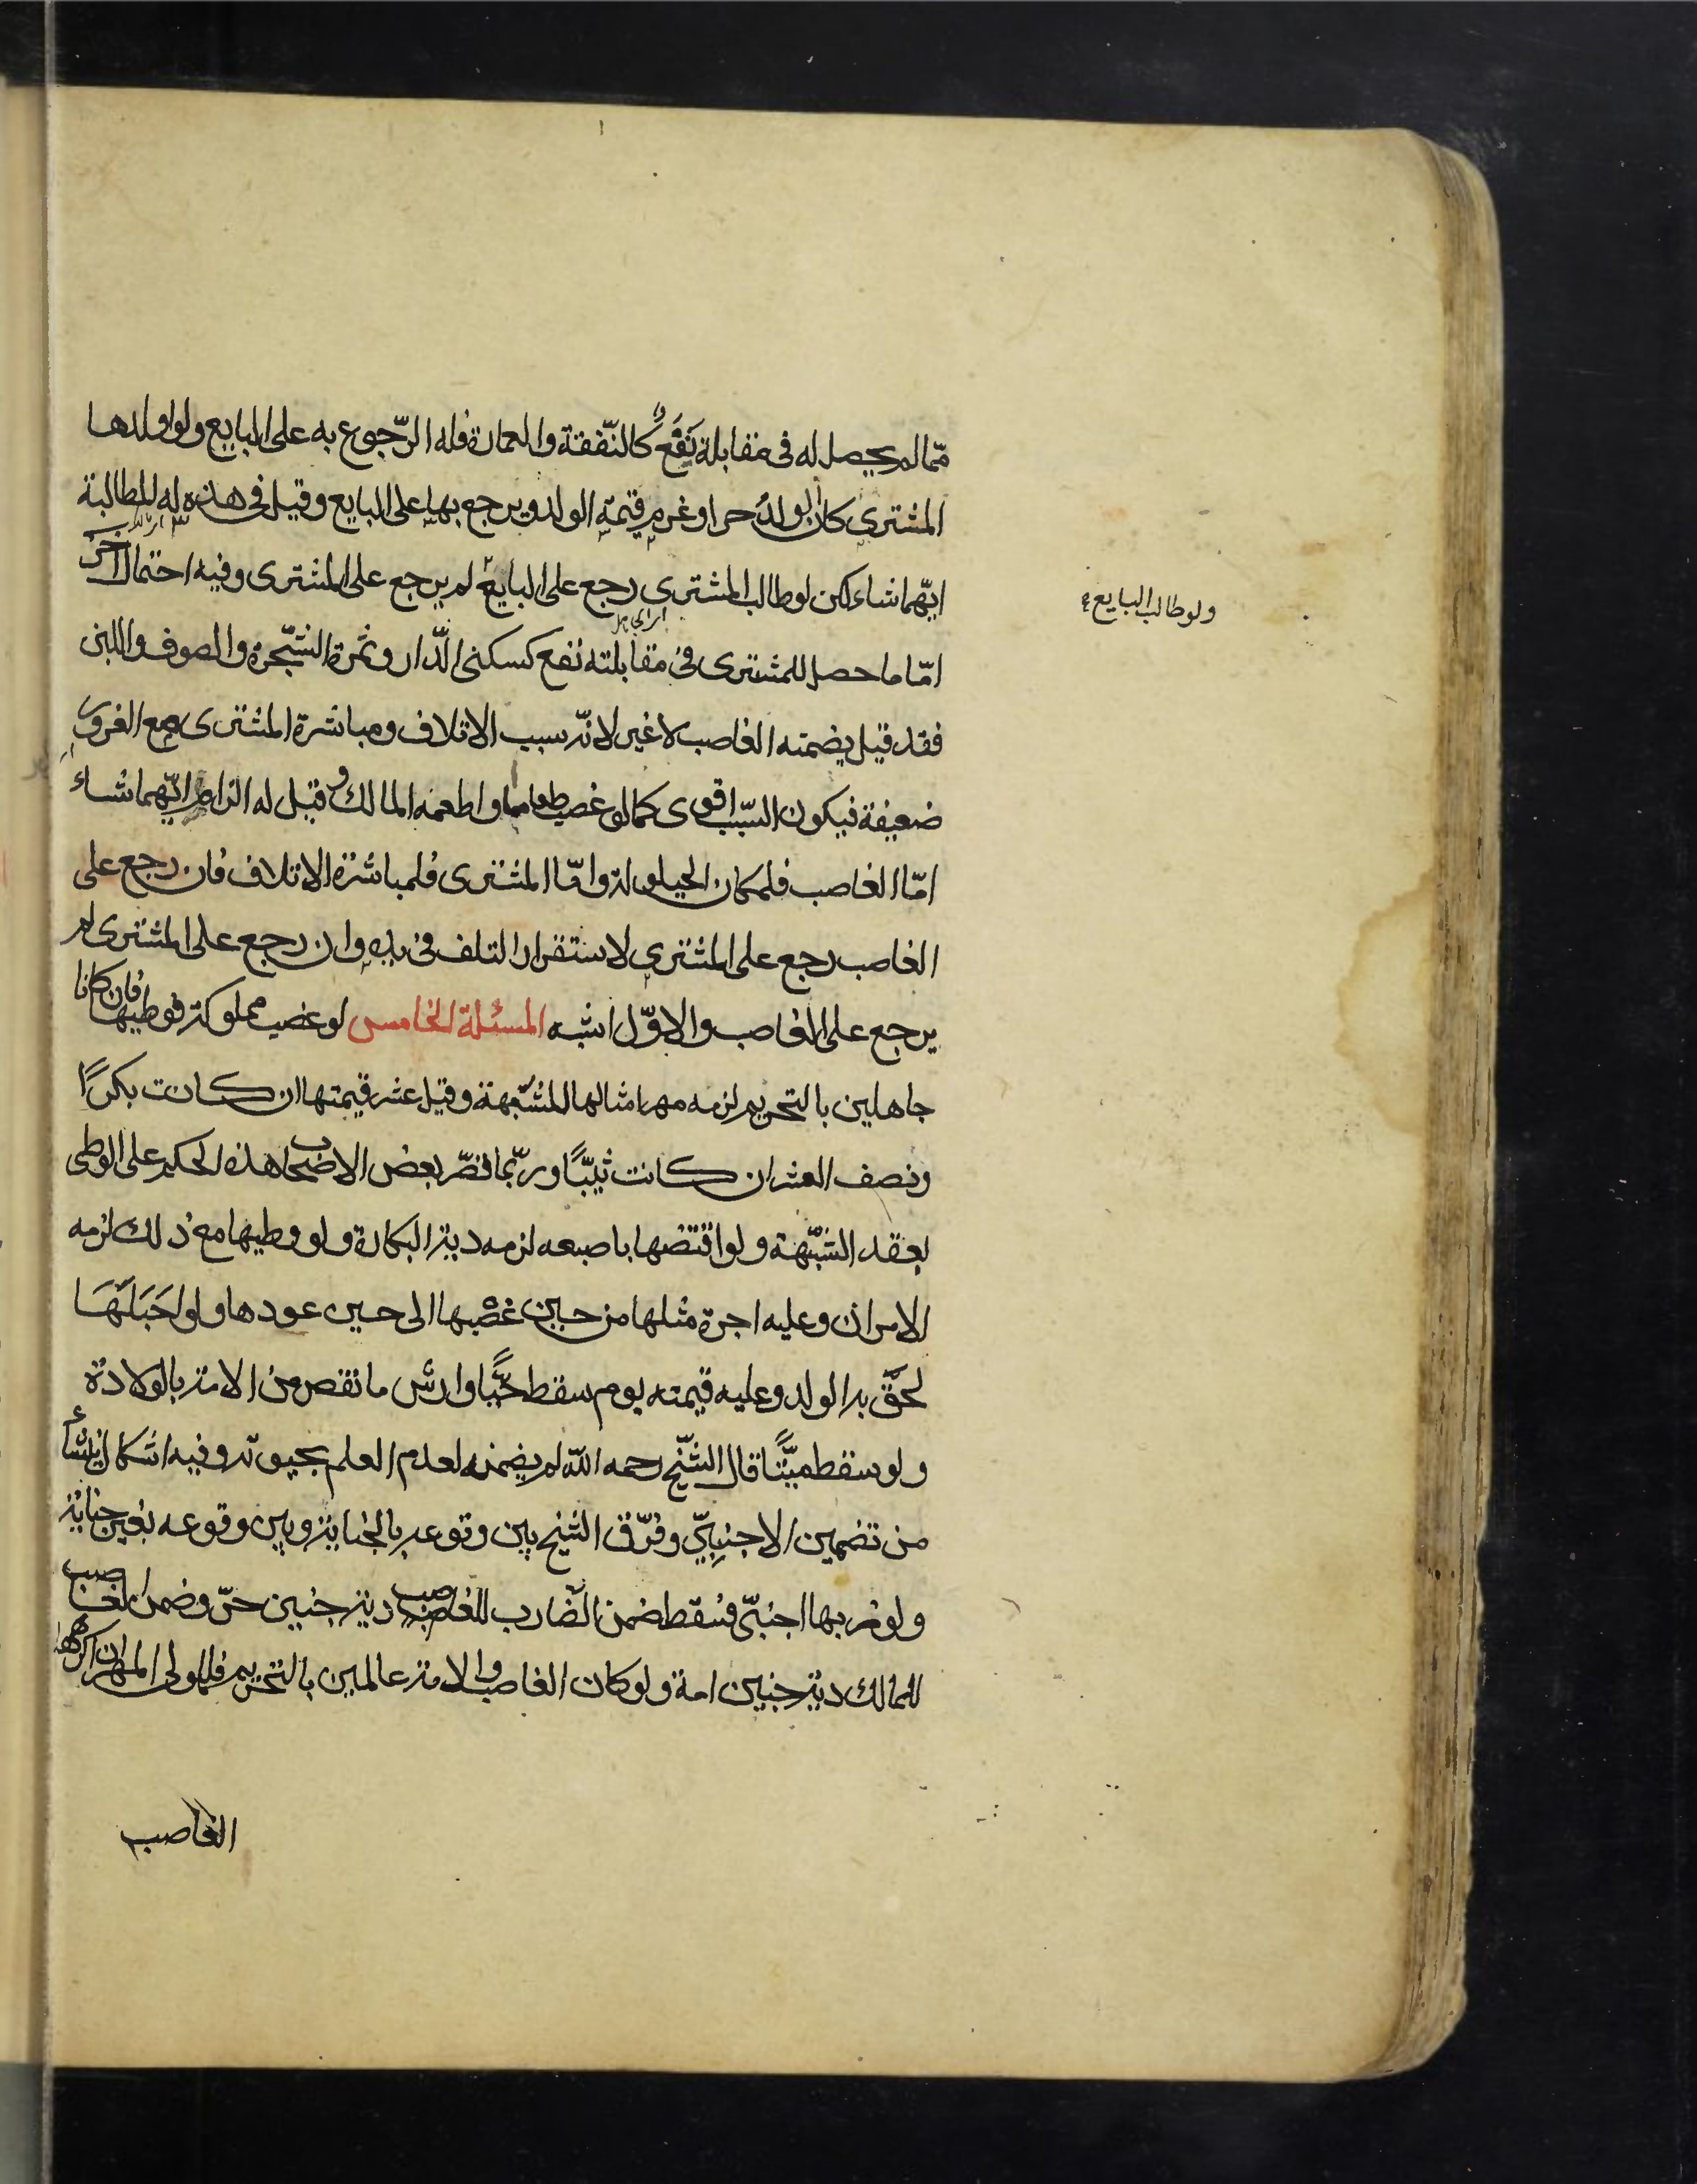 ممّا لم يحصل له في مقابلة نَفَعٌ كالنّفقة والعمارة فله الرّجوع به على البايع ولو اولدها
المشترى كان الولدُ حرا وغرم قيمة الولد ويرجع بها على البايع وقيل فى هذه له المطالبة
ايّهما شاء لكن لو طالب المشترى رجع على البايع لم يرجع على المشترى وفيه احتمال آخر
ولو طالب البايع
امّا ما حصل للمشترى فى مقابلته نفع كسكنى الدّار وثمرة الشّجرة والصوف واللبن
فقد قيل يضمنه الغاصب لا غير لانّه سبب الاتلاف ومباشرة المشترى مع الغرور
ضعيفة فيكون السّبب اقوى كما لو غصب طعاما واطعمه المالك وقيل له الزام ايّهما شاء
امّا الغاصب فلمكان الحيلولة وامّا المشترى فلمباشرة الاتلاف فان رجع على
الغاصب رجع على المشترى لاستقرار التلف فى يده وان رجع على المشترى لم
يرجع على الغاصب والاوّل اشبه المسئلة الخامس لو غصب مملوكة فوطيها فان كانا
جاهلين بالتحريم لزمه مهر امثالها للشّبهة وقيل عشر قيمتها ان كانت بكرًا
ونصف العشر ان كانت ثيّبًا وربّما قصّر بعض الاصحاب هذا الحكم على الوطى
بعقد الشّبهة ولو افتضها باصبعه لزمه دية البكارة ولو وطيها مع ذلك لزمه
الامران وعليه اجرة مثلها من حين غصبها الى حين عودها ولو احَبَلَهَا
لحَقَ به الولد وعليه قيمته يوم سقط حيًّا وارش ما نقص من الامة بالولادة
ولو سقط ميّتًا قال الشّيخ رحمه اللّه لم يضمنه لعدم العلم بحيوته وفيه اشكال ينشأ
من تضمين الاجنبيّ وفرّق الشيخ بين وقوعه بالجناية وبين وقوعه بغير جناية
ولو ضربها اجنبّى فسقط ضمن الضّارب للغاصب دية جنين حرّ وضمن الغاصب
للمالك دية جنين امة ولو كان الغاصب والامة عالمين بالتحريم فللمولى المهر ان اكرهها
الغاصب